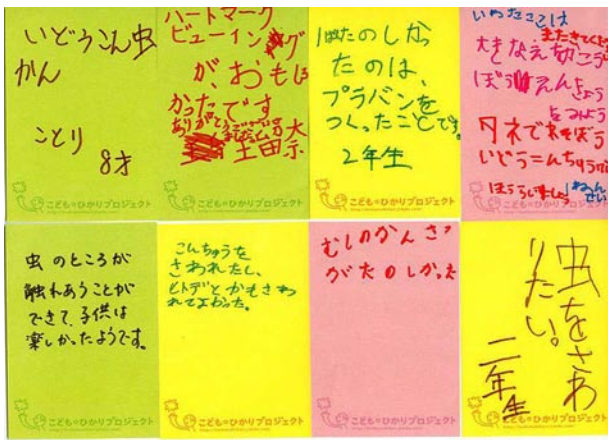 いどうこん虫
かん
ことり
8才
こども*ひかりプロジェクト
ハートマーク
ビューイング
が、おもしろ
かったです
ありがとうございました
土田
こども*ひかりプロジェクト
たのしかっ
たのは、
プラバンを
つくったことです。
2年生
こども*ひかりプロジェクト
大きな
ぼうえんきょう
タネであそぼう
いどうこんちゅう
こども*ひかりプロジェクト
虫のところが
触れあうことが
できて、子供は
楽しかったようです。
こども*ひかりプロジェクト
こんちゅうを
さわれたし、
ヒトデとかもさわ
れてよかった。
こども*ひかりプロジェクト
むしのかんさつ
がたのしかった
こども*ひかりプロジェクト
虫をさわ
りたい。
二年生
こども*ひかりプロジェクト